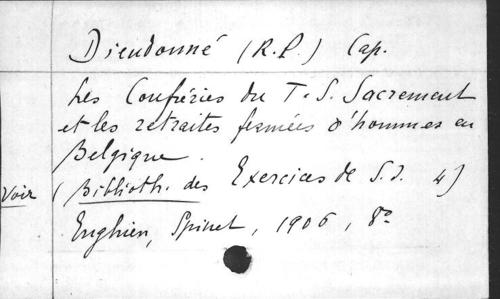 Dieudonné (R.P.) Cap.
Les Confréries du T.S. Sacrement
et les retraites fermées d'hommes en
Belgique.
Voir (Biblioth. des Exercices de S.I. 4)
Enghien, Spinet, 1906, 8°